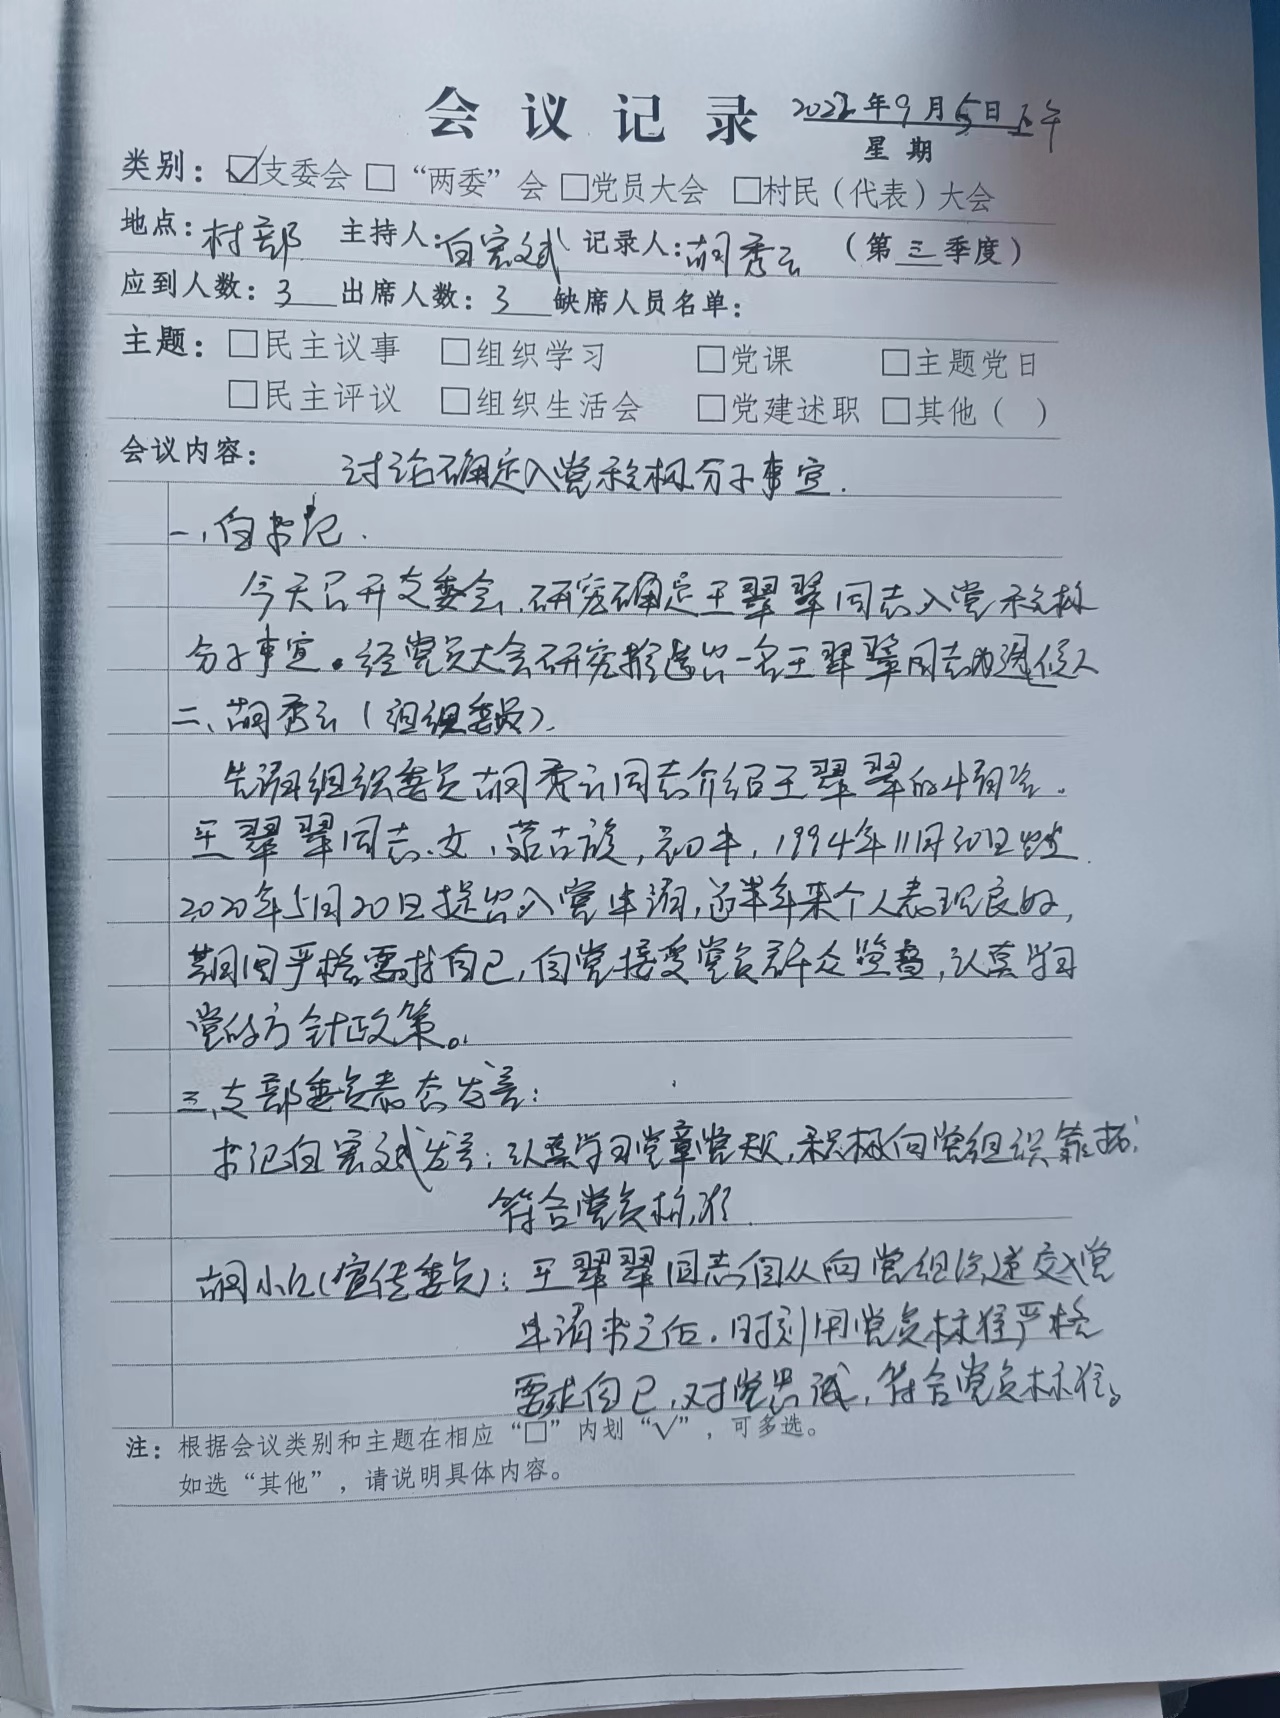 会议记录 2022年9月5日上午
星期
类别：☑支委会 □“两委”会 □党员大会 □村民（代表）大会
地点：村部 主持人：白宏斌 记录人：胡秀云 （第三季度）
应到人数：3 出席人数：3 缺席人员名单：
主题：□民主议事 □组织学习 □党课 □主题党日
□民主评议 □组织生活会 □党建述职 □其他（ ）
会议内容： 讨论确定入党积极分子事宜.
一、白书记.
今天召开支委会,研究确定王翠翠同志入党积极
分子事宜。经党员大会研究推选出一名王翠翠同志为候选人
二、胡秀云(组织委员).
先请组织委员胡秀云同志介绍王翠翠的情况.
王翠翠同志、女,蒙古族,初中,1994年11月30日出生
2020年5月20日提出入党申请,这半年来个人表现良好,
期间严格要求自己,自觉接受党员群众监督,认真学习
党的方针政策。
三、支部委员表态发言:
书记白宏斌发言:认真学习党章党规,积极向党组织靠拢,
符合党员标准.
胡小(宣传委员):王翠翠同志自从向党组织递交入党
申请书之后,时刻用党员标准严格
要求自己,对党忠诚,符合党员标准。
注：根据会议类别和主题在相应“□”内划“√”，可多选。
如选“其他”，请说明具体内容。